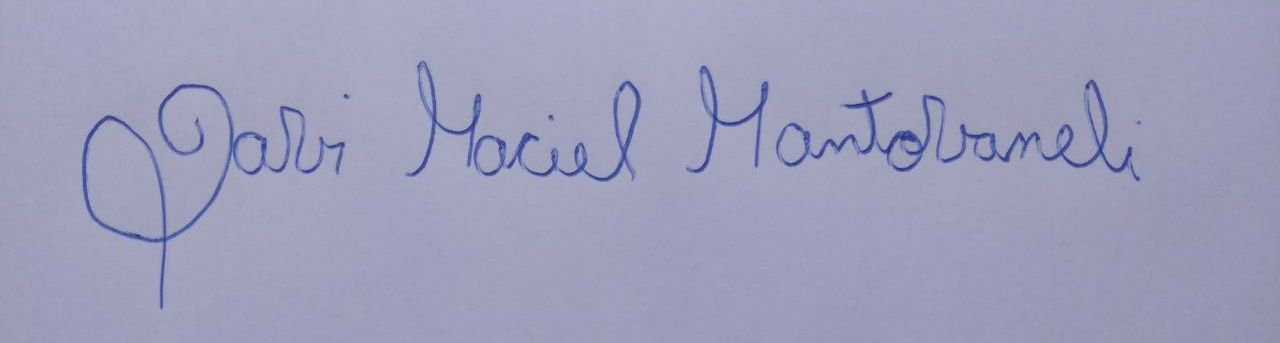 Davi Maciel Mantovaneli